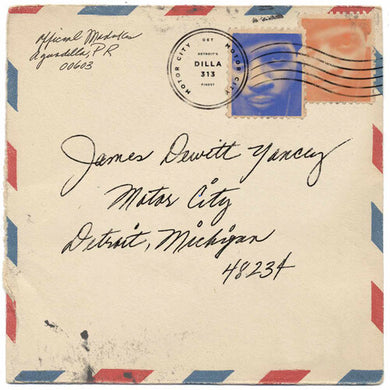 Official Madoka
Aguadilla, PR
00603
MOTOR CITY
GET
DETROIT'S
DILLA
313
FINEST
MOTOR CITY
James Dewitt Yancey
Motor City
Detroit, Michigan
48234